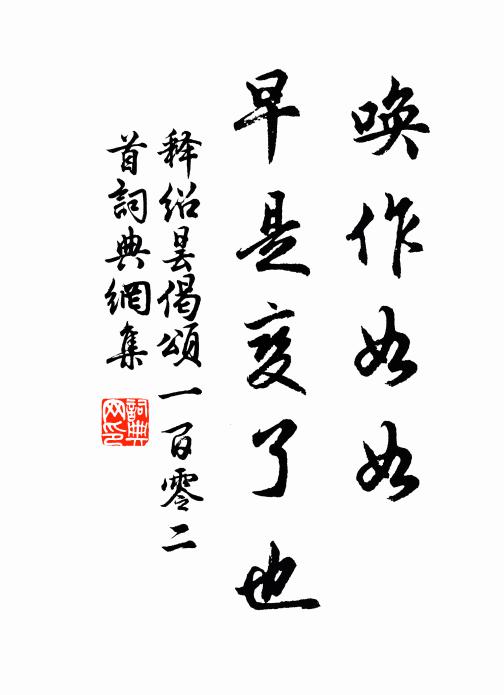 唤作如如
早是变了也
释绍昙偈頌一百零二
首詞典網集
詞典
网印